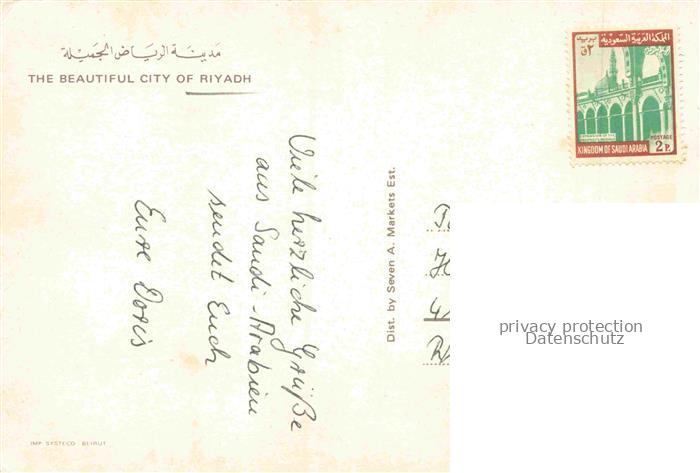 مدينة الرياض الجميلة
THE BEAUTIFUL CITY OF RIYADH
Viele herzliche Grüße
aus Saudi-Arabien
sendet Euch
Eure Doris
Dist. by Seven A. Markets Est.
المملكة العربية السعودية
بريد
ق٢
POSTAGE
KINGDOM OF SAUDI ARABIA 2 P.
privacy protection
Datenschutz
IMP. SYSTECO - BEIRUT